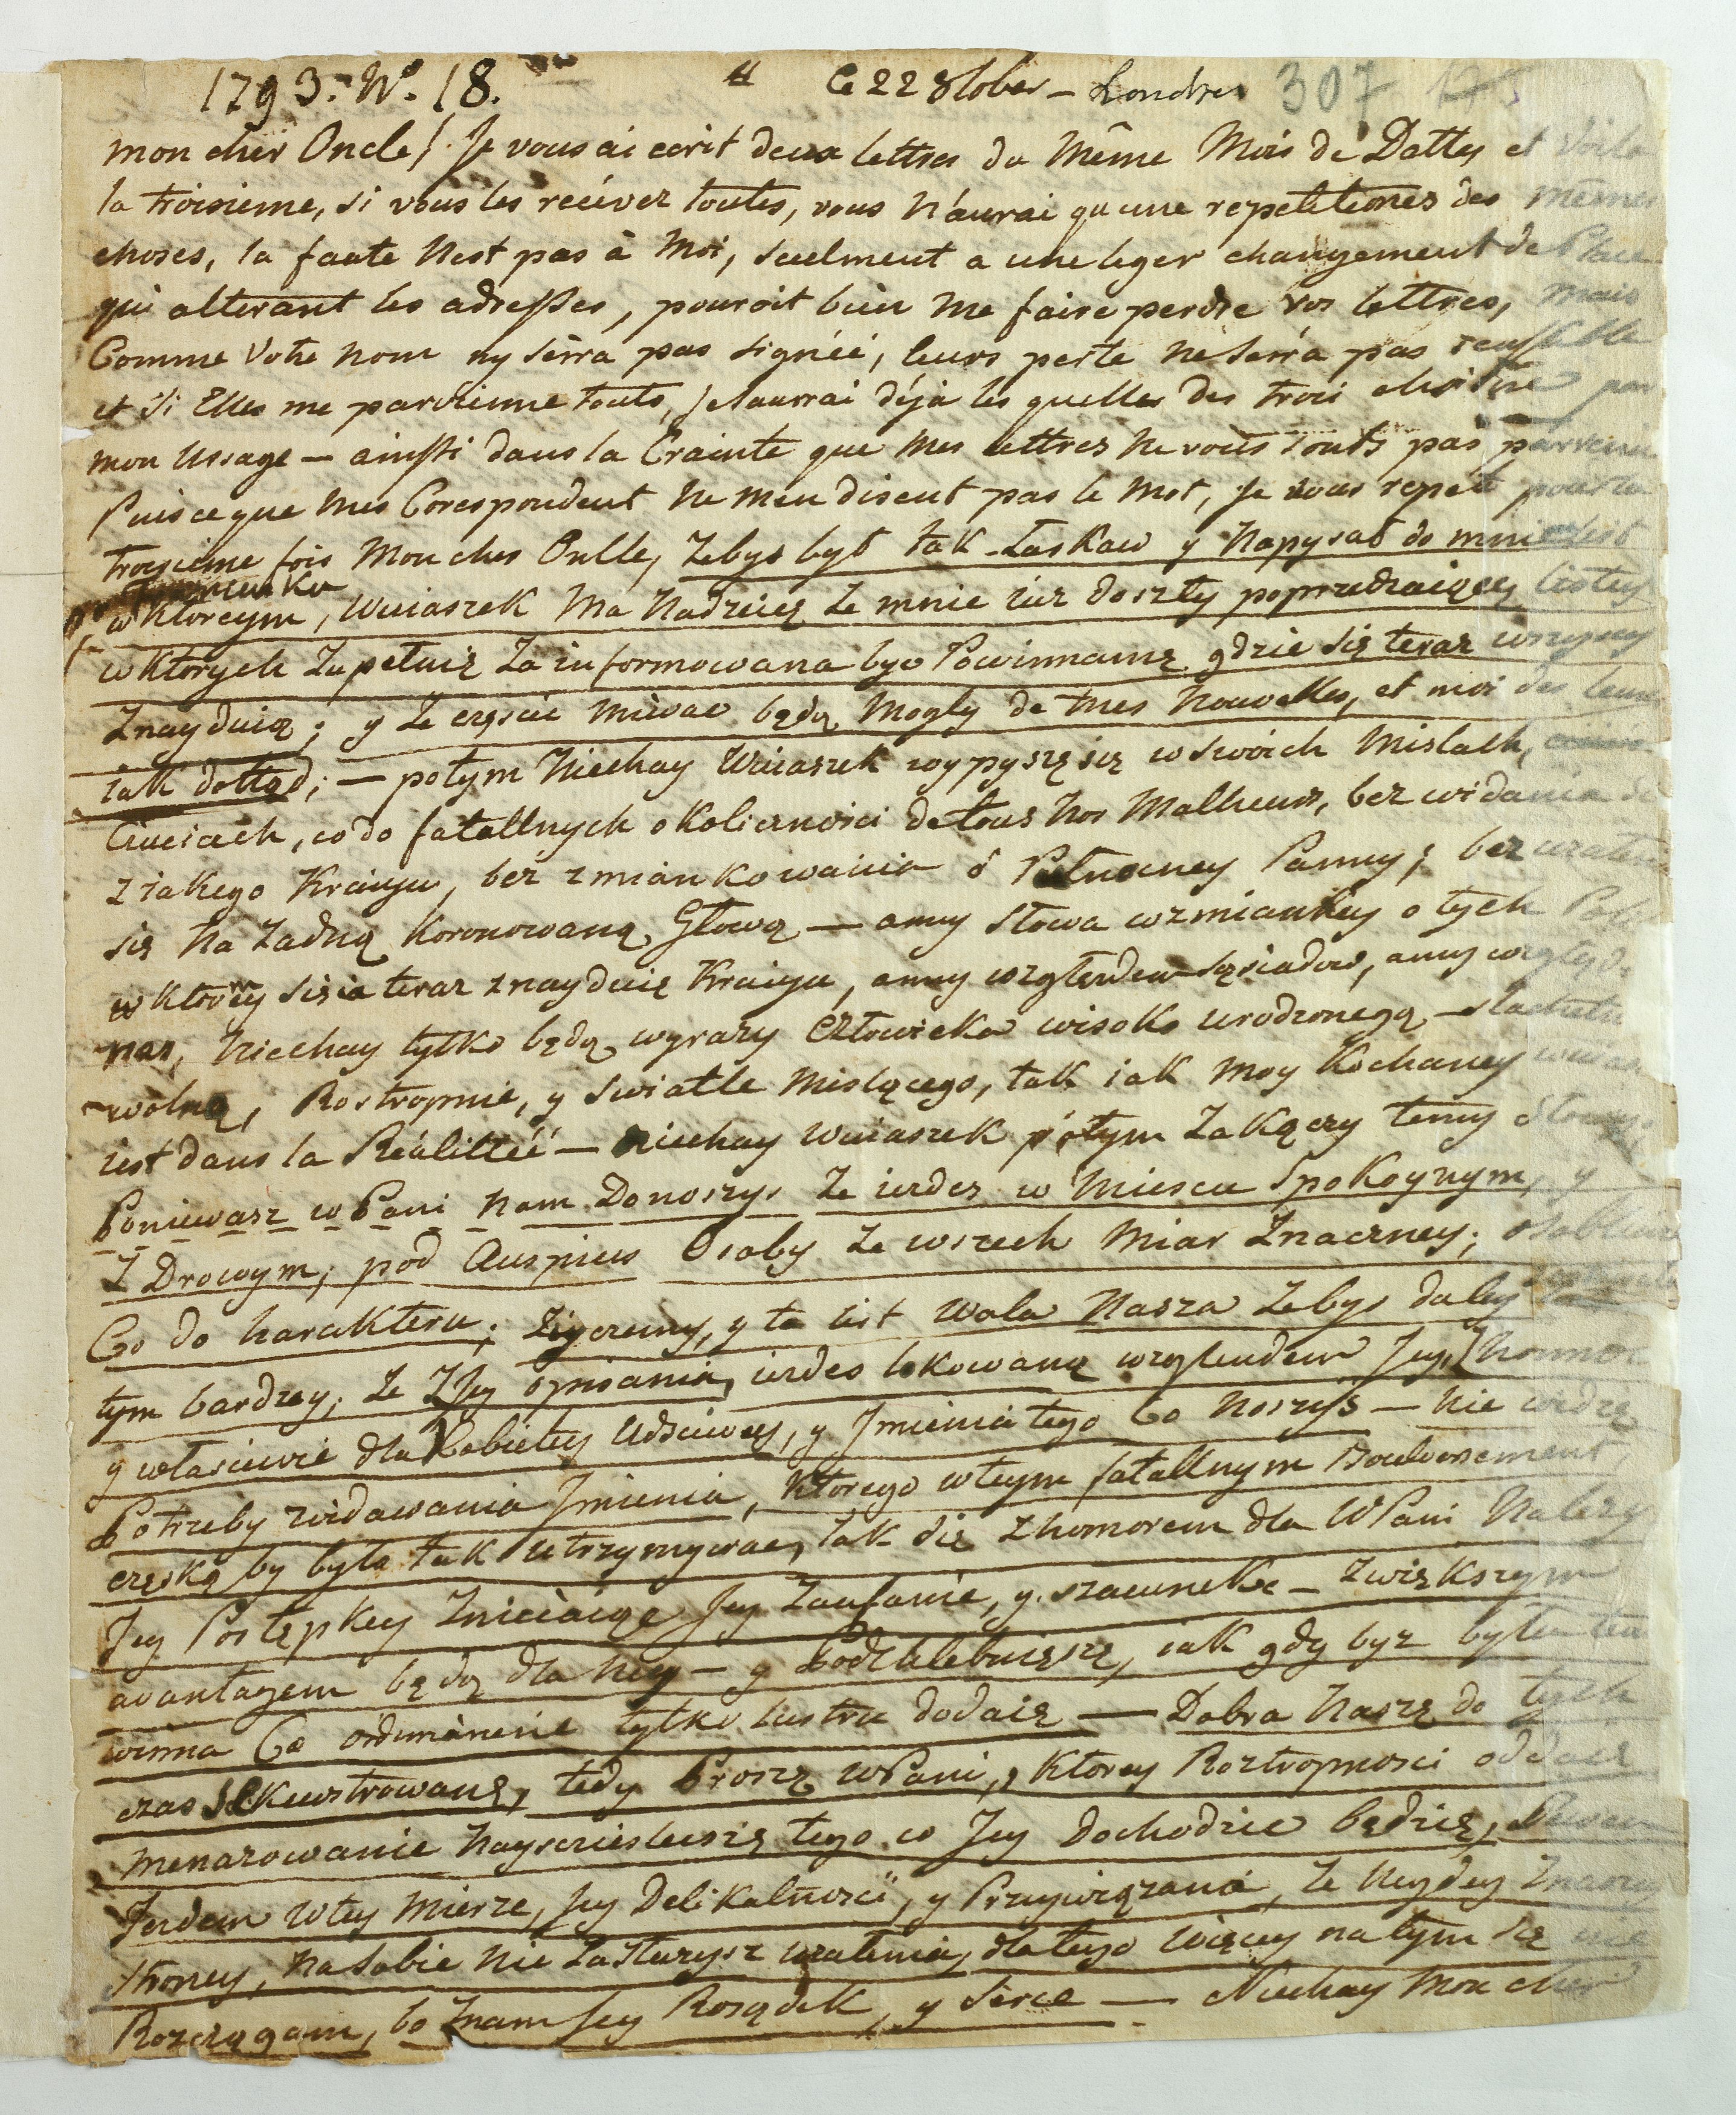 1793. No. 18. # Ce 22 8tober – Londres 307
mon cher Oncle! Je vous ai ecrit deux lettres du Même Mois de Dattes et Voila
la troisieme, si vous les recévez toutes, vous n'aurai qu une repetitiones des mêmes
choses, la faute Nest pas à Moi, seulment a une leger changement de Place
qui alterant les adresses, pouroit bien me faire perdre vos lettres, mais
Comme Votre nom ny sèrra pas signéé, leurs perte ne serra pas
et si Elles me parvienne touts, je saurrai déja les quelles des trois
mon Ussage – ainssi dans la Crainte que Mes lettres ne vous sonts pas parvenu
Puisce que mes Corespondent ne men disent pas le Mot, je vous repete pour la
troisieme fois Mon cher Onlle, Zebys był tak Łaskaw y Napysał do mnie list
w Ktorcym, Wuiaszek Ma Nadzieię że mnie iuz doszły poprzedzaiącey listy
w Ktorych Zupełnię Zainformowana byc Powinnamę gdzie się teraz wszyscy
Znayduią; y że częscie miwac będą Mogly de mes Nouvelles, et moi des leur
iak dotąd; – potym Niechay Wuiaszek wypyszę się w swoich Mislach,
Cuciach, co do fatallnych okolicznosci de tous Nos Malheurs, bez widania
z iakego Kraiyu, bez zmiankowania o Pułnocney Panny; bez
się Na Zadną Koronowaną Głową – anny słowa wzmianky o tych
w Ktorey się ia teraz znayduię Kraiyu, anny wzglendem sąsiadow, anny
nas, Niechay tylko będą wyrazy Człowieka wisoko urodzonegą –
wolną, Rostropnie, y swiatle Mislącego, tak iak moy Kochaney
iest dans la Réalittéé – Niechay Wuiaszek potym Zakączy temy
Poniewasz wPani Nam Donoszys że iezdes w Miescu Spokoynym, y
ZDrowym; pod Auspicis Osoby ze wszech Miar Znaczney;
Co do harakteru; Ziyczemy, y ta iest Wola Nasza Zebys daley
tym bardzey, że ZJey opisania, iezdes lokowaną wzglendem Jey, honnor
y własciwie dla Kobiety Udsciwey, y Jmienia tego Co Noszys – Nie widzę
Potrzeby zwidawania Jmienia, Ktorego w teym fatallnym Boulversement
częską by była tak utrzymywac, tak się z homorem dla WPani Nalezy
Jey Postępkey Zniecaiąc Jey Zaufanie, y. szacunek – zwiększym
avantagem będą dla Niey – y PodChlebnieszę, iak gdy byz była
winna Co ordinàrie tylko lustru dodaię – Dobra Naszę do tych
czas SeKwestrowanę, tedy Proszę wPani, Ktorey Roztropnosci oddaię
Menazowanie Nayscieslieszę tego co Jey Dochodzic będzię,
Jezdem w tey Mierze, Jey Delikatnosci, y Przywiązania, że Nigdey
strony, na sobie nie Zasłuzysz uzalenia, dla tego Więcey na tym się nie
Rozciągam, bo Znam Jey Roządek, y serce – Niechay Mon cher